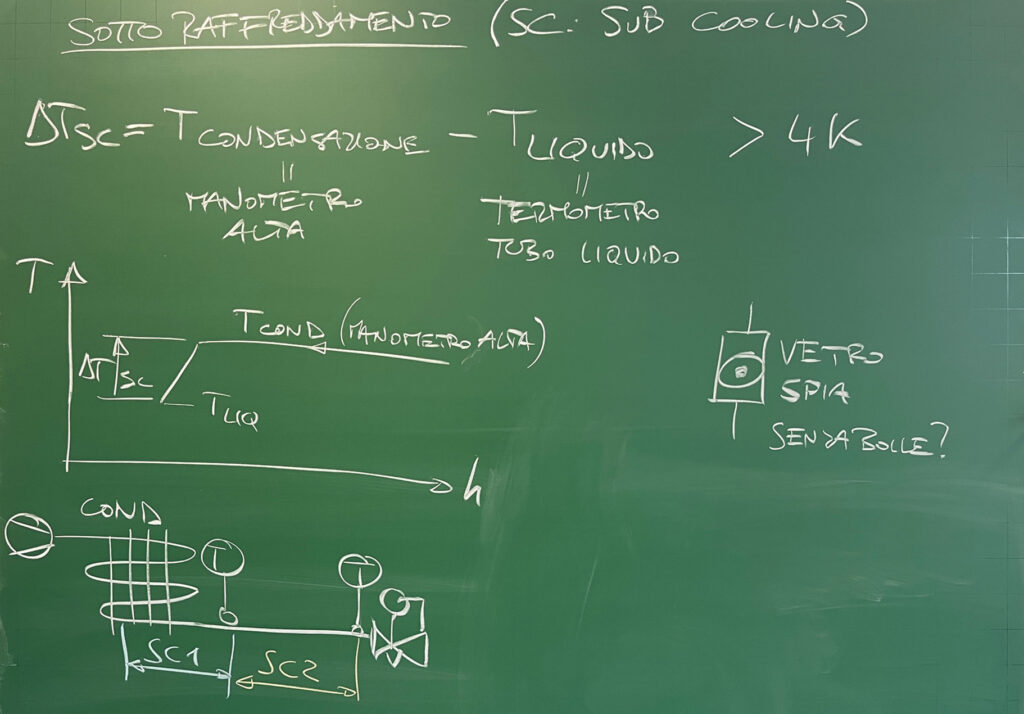 SOTTO RAFFREDDAMENTO (SC: SUB COOLING)
ΔTSC = TCONDENSAZIONE - TLIQUIDO > 4K
=
=
MANOMETRO
ALTA
TERMOMETRO
TUBO LIQUIDO
T
TCOND (MANOMETRO ALTA)
ΔTSC
TLIQ
h
VETRO
SPIA
SENZA BOLLE?
COND
T
T
SC1
SC2